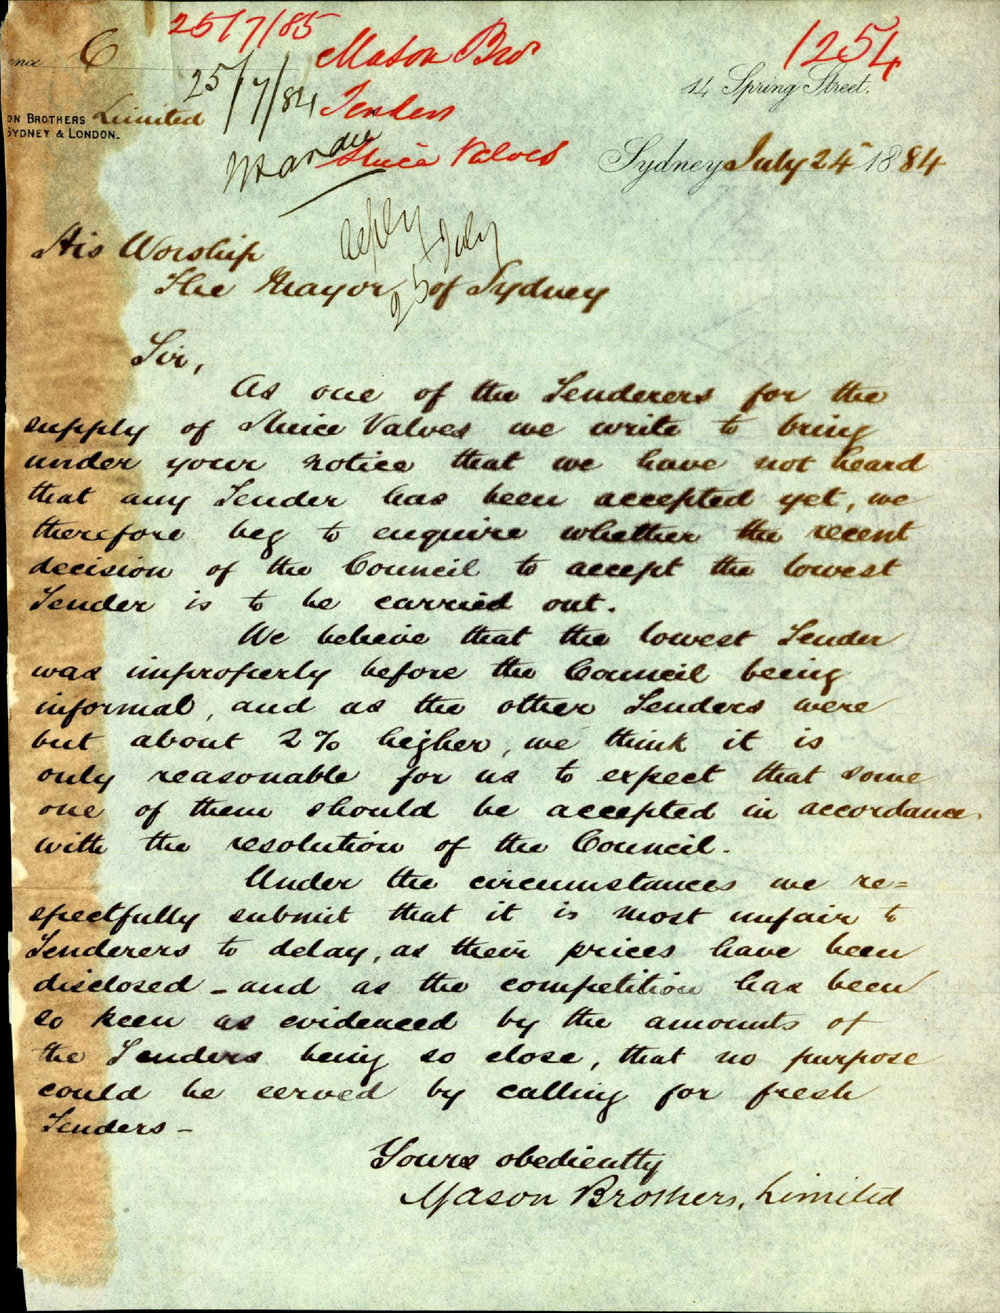 25/7/85
Mason Bros
1254
nce 6
25/7/84
Tenders
14 Spring Street.
ON BROTHERS Limited
SYDNEY & LONDON.
Sluice Valves
Sydney July 24th 1884
reply
25 July
His Worship
The Mayor of Sydney
Sir,
As one of the Tenderers for the
supply of Sluice Valves we write to bring
under your notice that we have not heard
that any Tender has been accepted yet, we
therefore beg to enquire whether the recent
decision of the Council to accept the lowest
Tender is to be carried out.
We believe that the lowest Tender
was improperly before the Council being
informal, and as the other Tenders were
but about 2% higher, we think it is
only reasonable for us to expect that some
one of them should be accepted in accordance
with the resolution of the Council.
Under the circumstances we re=
spectfully submit that it is most unfair to
Tenderers to delay, as their prices have been
disclosed - and as the competition has been
so keen as evidenced by the amounts of
the Tenders being so close, that no purpose
could be served by calling for fresh
Tenders -
Yours obediently
Mason Brothers, Limited